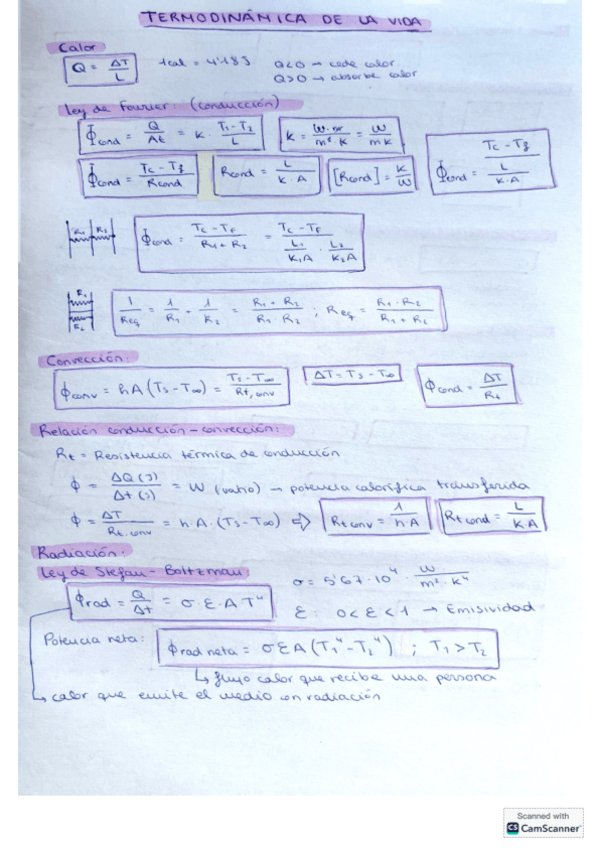 TERMODINÁMICA DE LA VIDA
Calor
Q = ΔT / L   1cal = 4'18J   Q<0 → cede calor
Q>0 → absorbe calor
Ley de Fourier: (conducción)
Φcond = Q / At = K · T1 - T2 / L   K = W·m / m² K = W / mK   Φcond = Tc - Tf / L / K·A
Φcond = Tc - Tf / Rcond   Rcond = L / K·A   [Rcond] = K / W
R1 R2   Φcond = Tc - TF / R1 + R2 = Tc - TF / L1 / K1A · L2 / K2A
R1 R2   1 / Req = 1 / R1 + 1 / R2 = R1 + R2 / R1 · R2 ; Req = R1 · R2 / R1 + R2
Convección:
ϕconv = hA (Ts - T∞) = Ts - T∞ / Rt, conv   ΔT = Ts - T∞   ϕcond = ΔT / Rt
Relación conducción - convección:
Rt = Resistencia térmica de conducción
ϕ = ΔQ (J) / Δt (s) = W (vatio) → potencia calorífica transferida
ϕ = ΔT / Rt. conv = h·A·(Ts - T∞) ⇒ Rt conv = 1 / h·A   Rt cond = L / K·A
Radiación:
Ley de Stefan - Boltzman:   σ = 5'67·10⁴ · W / m²·K⁴
ϕrad = Q / Δt = σ·ε·A T⁴   ε: 0<ε<1 → Emisividad
Potencia neta: ϕrad neta = σεA (T1⁴ - T2⁴) ; T1 > T2
↳ flujo calor que recibe una persona
↳ calor que emite el medio con radiación
Scanned with
CS CamScanner